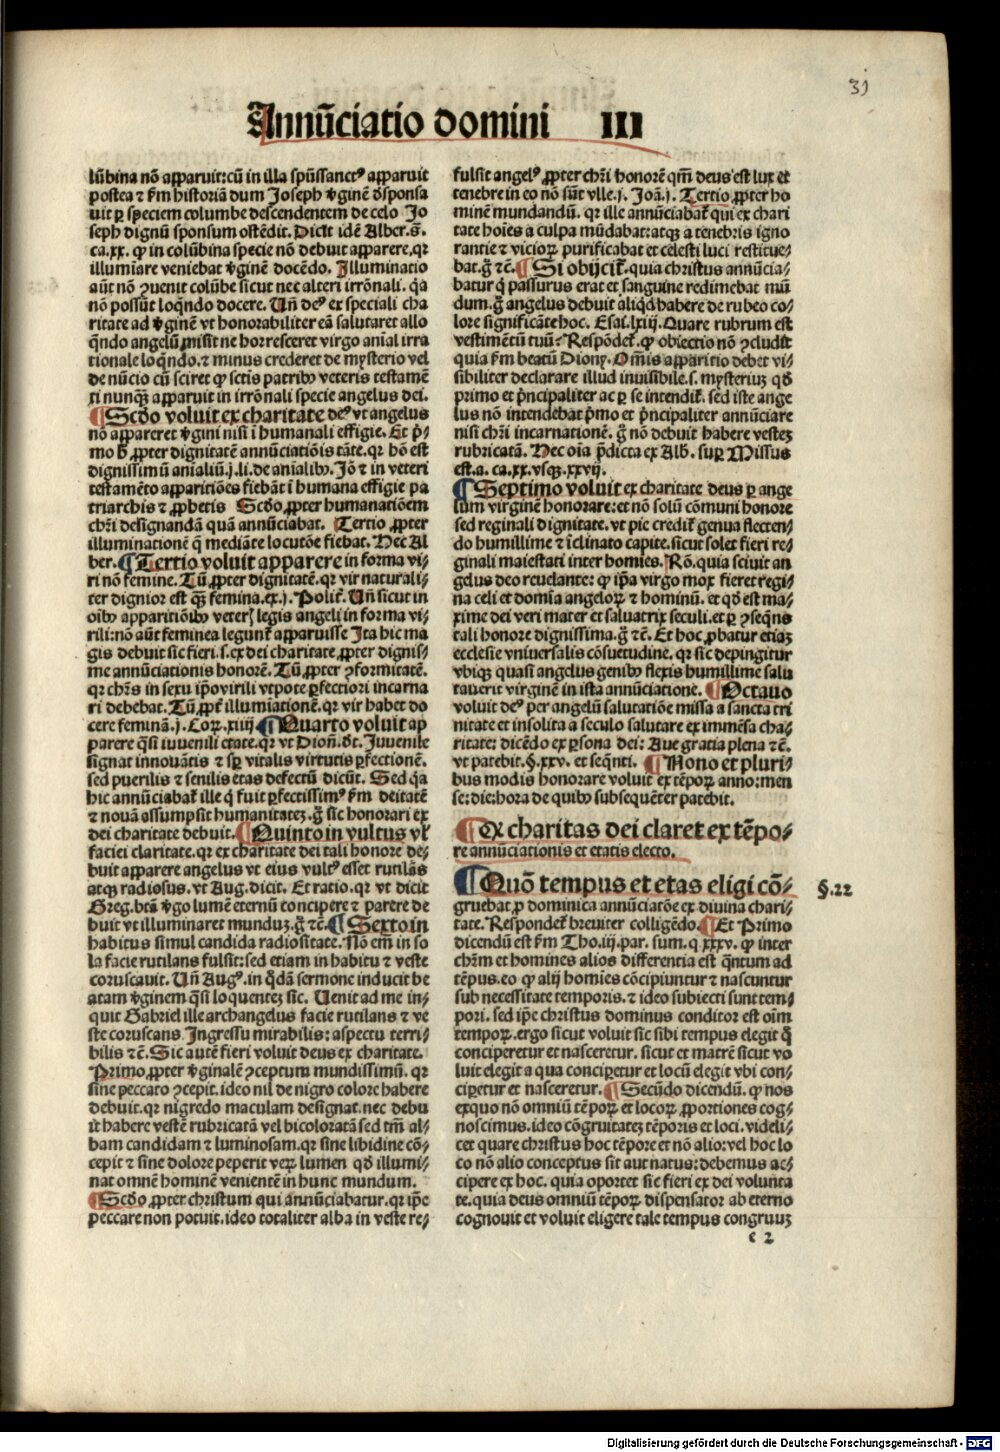 31
Annūciatio domini III
lūbina nō apparuit: cū in illa spūssanctꝰ apparuit
postea ⁊ ẜm historiā dum Joseph v̓ginē dṡponsa
uit ꝑ speciem columbe descendentem de celo Jo
seph dignū sponsum ostēdit. Dicit idē Alber. s̄.
ca.xx. ꝙ in colūbina specie nō debuit apparere.qr
illumiare veniebat v̓ginē docēdo. Illuminatio
aūt nō ꝯuenit colūbe sicut nec alteri irrōnali. q̄a
nō possūt loq̄ndo docere. Vn̄ deꝰ ex speciali cha
ritate ad v̓ginē vt honorabiliter eā salutaret allo
q̄ndo angelū misit ne horresceret virgo anīal irra
tionale loq̄ndo.⁊ minus crederet de mysterio vel
de nūcio cū sciret ꝙ sctis patribꝰ veteris testamē
ti nunqꝫ apparuit in irrōnali specie angelus dei.
¶ Scd̄o voluit ex charitate deꝰ vt angelus
nō appareret v̓gini nisi ī humanali effigie. Et p̓-
mo h̄ ꝓpter dignitatē annūciatiōis tāte. qr hō est
dignissimū anīaliū.j.li.de anīalibꝰ. Jō ⁊ in veteri
testamēto apparitiōes fiebāt ī humana effigie pa
triarchis ⁊ ꝓphetis Scd̄o ꝓpter humanatiōem
chr̄i designandā quā annūciabat. Tertio ꝓpter
illuminationē q̄ mediāte locutōe fiebat. Nec Al
ber. ¶ Tertio voluit apparere in forma vi-
ri nō femine. Tū ꝓpter dignitatē. qr vir naturali-
ter dignior est qꝫ femina.ex.j.Polit̓. Vn̄ sicut in
oībꝰ apparitiōibꝰ veterꝭ legis angeli in forma vi-
rili: nō aūt feminea legunt̓ apparuisse Ita hic ma
gis debuit sic fieri.s.ex dei charitate ꝓpter dignis-
me annūciationis honorē. Tū ꝓpter ꝯformitatē.
qr chr̄s in sexu ip̄o virili vtpote ꝑfectiori incarna
ri debebat. Tū ꝓpt̓ illumiationē. qr vir habet do
cere feminā.j.Corꝝ.xiiij ¶ Quarto voluit ap
parere q̄si iuuenili etate.qr vt Dion̄.dt̓. Juuenile
signat innouātis ⁊ sp̄ vitalis virtutis ꝑfectionē.
sed puerilis ⁊ senilis etas defectū dicūt. Sed q̄a
hic annūciabat̓ ille q̄ fuit ꝑfectissimꝰ ẜm deitatē
⁊ nouā assumpsit humanitatē.g̊ sic honorari ex
dei charitate debuit. ¶ Quinto in vultus vl̓
faciei claritate.qr ex charitate dei tali honore de-
buit apparere angelus vt eius vultꝰ esset rutilās
atqꝫ radiosus.vt Aug.dicit. Et ratio.qr vt dicit
Greg.btā v̓go lumē eternū concipere ⁊ parere de
buit vt illuminaret mundū.g̊ ⁊c̄. ¶ Sexto in
habitus simul candida radiositate. Nō em̄ in so
la facie rutilans fulsit: sed etiam in habitu ⁊ veste
coruscauit. Vn̄ Augꝰ.in q̄dā sermone inducit be
atam v̓ginem q̄si loquentē sic. Uenit ad me in-
quit Gabriel ille archangelus facie rutilans ⁊ ve
ste coruscans Ingressu mirabilis: aspectu terri-
bilis ⁊c̄. Sic autē fieri voluit deus ex charitate.
Primo ꝓpter v̓ginalē ꝯceptum mundissimū. qr
sine peccato ꝯcepit. ideo nil de nigro colore habere
debuit.qr nigredo maculam designat.nec debu
it habere vestē rubricatā vel bicoloratā sed tm̄ al-
bam candidam ⁊ luminosam.qr sine libidine cō-
cepit ⁊ sine dolore peperit verꝝ lumen qd̄ illumi-
nat omnē hominē venientē in hunc mundum.
¶ Scd̄o ꝓpter christum qui annūciabatur.qr ip̄e
peccare non potuit.ideo totaliter alba in veste re-
fulsit angelꝰ ꝓpter chr̄i honorē qm̄ deus est lux et
tenebre in eo nō sūt vlle.j.Joā.j. Tertio ꝓpter ho
minē mundandū. qr ille annūciabat̓ qui ex chari
tate hoīes a culpa mūdabat: atqꝫ a tenebris igno
rantie ⁊ viciorꝝ purificabat et celesti luci restitue-
bat.g̊ ⁊c̄. ¶ Si obijcit̓. quia christus annūcia-
batur q̄ passurus erat et sanguine redimebat mū
dum.g̊ angelus debuit aliqd̄ habere de rubeo co-
lore significāte hoc. Esai.lxiij. Quare rubrum est
vestimētū tuū? Respōdet̓. ꝙ obiectio nō ꝯcludit
quia ẜm beatū Diony. Om̄is apparitio debet vi-
sibiliter declarare illud inuisibile.s.mysteriuꝫ qd̄
primo et p̓ncipaliter ac ꝑ se intendit̓. sed iste ange
lus nō intendebat p̓mo et p̓ncipaliter annūciare
nisi chr̄i incarnationē. g̊ nō debuit habere vesteꝫ
rubricatā. Nec oīa p̄dicta ex Alb. suꝑ Missus
est.a.ca.xx.vsqꝫ.xxvij.
¶ Septimo voluit ex charitate deus ꝑ ange
lum virginē honorare: et nō solū cōmuni honore
sed reginali dignitate. vt pie credit̓ genua flecten-
do humillime ⁊ īclinato capite.sicut solet fieri re-
ginali maiestati inter homies. Rō.quia sciuit an
gelus deo reuelante: ꝙ ip̄a virgo mox fieret regi-
na celi et domīa angelorꝝ ⁊ hominū. et qd̄ est ma-
xime dei veri mater et saluatrix seculi.et ꝑ ꝯseq̄ns
tali honore dignissima.g̊ ⁊c̄. Et hoc ꝓbatur etiaꝫ
ecclesie vniuersalis cōsuetudine. qr sic depingitur
vbiqꝫ quasi angelus genibꝰ flexis humillime salu
tauerit virginē in ista annūciatione. ¶ Octauo
voluit deꝰ per angelū salutatiōe missa a sancta tri
nitate et insolita a seculo salutare ex immēsa cha-
ritate: dicēdo ex ꝑsona dei: Aue gratia plena ⁊c̄.
vt patebit.§.xxv. et seq̄nti. ¶ Nono et pluri-
bus modis honorare voluit ex tēporꝝ anno: men
se: die: hora de quibꝰ subsequēter patebit.
¶ Ex charitas dei claret ex tēpo-
re annūciationis et etatis electo.
¶ Quō tempus et etas eligi cō- §.22
gruebat ꝓ dominica annūciatōe ex diuina chari-
tate. Respondet̓ breuiter colligēdo. ¶ Et Primo
dicendū est ẜm Tho.iij.par. sum.q xxxv. ꝙ inter
chr̄m et homines alios differentia est q̄ntum ad
tēpus.eo ꝙ alij homīes cōcipiuntur ⁊ nascuntur
sub necessitate temporis. ⁊ ideo subiecti sunt tem-
pori. sed ip̄e christus dominus conditor est oīm
temporꝝ.ergo sicut voluit sic sibi tempus elegit q̊
conciperetur et nasceretur. sicut et matrē sicut vo
luit elegit a qua conciperetur et locū elegit vbi con-
ciperetur et nasceretur. ¶ Secūdo dicendū. ꝙ nos
exquo nō omniū tēporꝝ et locorꝝ ꝓportiones cog-
noscimus.ideo cōgruitateꝫ tēporis et loci. videli-
cet quare christus hoc tēpore et nō alio: vel hoc lo
co nō alio conceptus sit aut natus: debemus ac-
cipere ex hoc. quia oportet sic fieri ex dei volunta
te.quia deus omniū tēporꝝ dispensator ab eterno
cognouit et voluit eligere tale tempus congruuꝫ
e 2
Digitalisierung gefördert durch die Deutsche Forschungsgemeinschaft - DFG